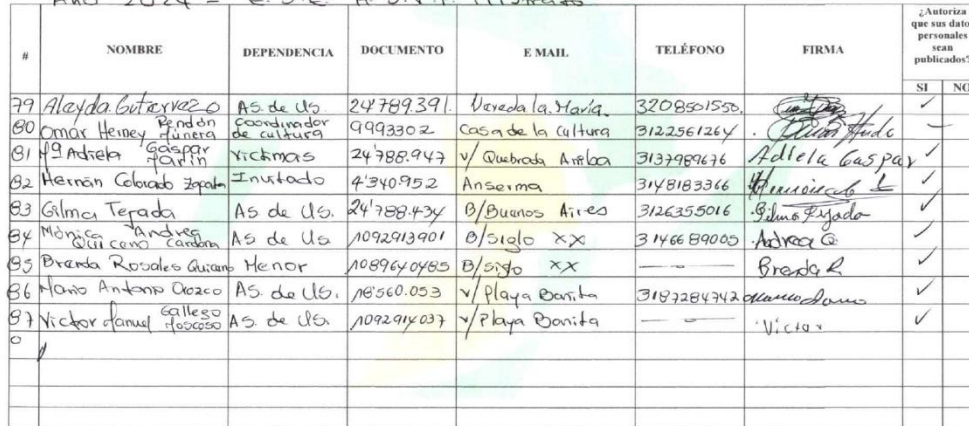 Año 2024 - E.S.E.
# NOMBRE DEPENDENCIA DOCUMENTO E MAIL TELÉFONO FIRMA ¿Autoriza que sus datos personales sean publicados?
SI NO
79 Alayda Gutierrez O As. de Us. 24'789.391. Vereda la María. 3208501550. ✓
80 Omar Heiney Rendón Múnera Coordinador de cultura 9993302 Casa de la cultura 3122561264
81 Mª Adiela Gaspar Marín Victimas 24'788.947 v/ Quebrada Arriba 3137989676 Adiela Gaspar ✓
82 Hernán Colorado Zapata Invitado 4'340.952 Anserma 3148183366 ✓
83 Gilma Tejada As de Us. 24'788.434 B/Buenos Aires 3126355016 Gilma Tejada ✓
84 Mónica Andrea Quiceno Cardona As de Us 1092913901 B/siglo XX 3146689005 Andrea Q. ✓
85 Brenda Rosales Quiceno Menor 1089640485 B/siglo XX Brenda R ✓
86 Mario Antonio Orozco As. de Us. 18'560.053 v/ Playa Bonita 3187284742 ✓
87 Victor Manuel Gallego Moscoso As. de Us. 1092914037 v/ Playa Bonita Victor ✓